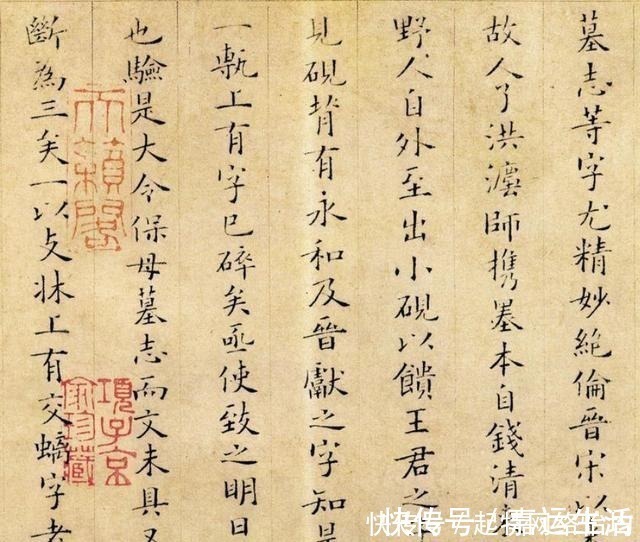 墓志等字尤精妙絕倫晉宋以
故人了洪灋師携墨本自錢清
野人自外至出小硯以饋王君之
見硯背有永和及晉獻之字知是
一甎上有字已碎矣亟使致之明日
也驗是大令保母墓志而文未具又
斷為三矣一以支牀上有交螭字者
天籟閣
項子京
家珍藏
快传号/嘉运生活